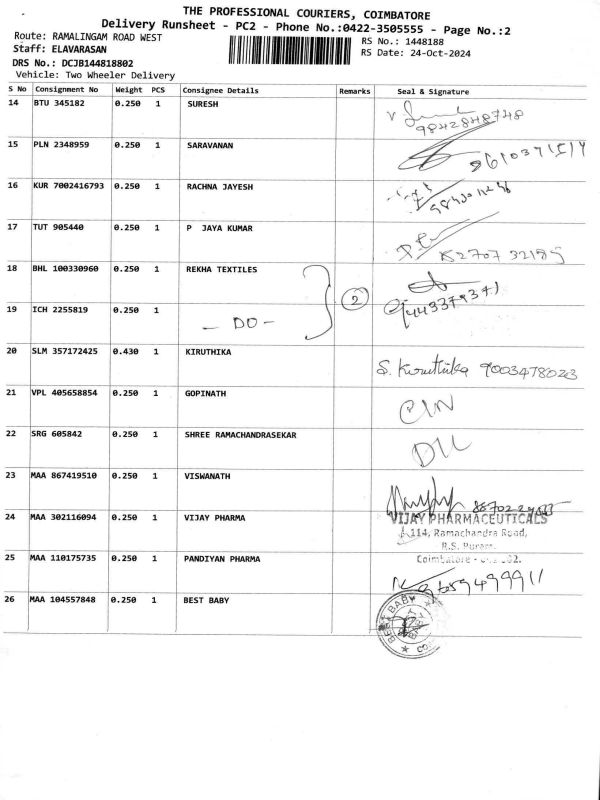 THE PROFESSIONAL COURIERS, COIMBATORE
Delivery Runsheet - PC2 - Phone No.:0422-3505555 - Page No.:2
Route: RAMALINGAM ROAD WEST
RS No.: 1448188
Staff: ELAVARASAN
RS Date: 24-Oct-2024
DRS No.: DCJB144818802
Vehicle: Two Wheeler Delivery
S No Consignment No Weight PCS Consignee Details Remarks Seal & Signature
14 BTU 345182 0.250 1 SURESH
9842848748
15 PLN 2348959 0.250 1 SARAVANAN
16 KUR 7002416793 0.250 1 RACHNA JAYESH
17 TUT 905440 0.250 1 P JAYA KUMAR
18 BHL 100330960 0.250 1 REKHA TEXTILES
2
9443379371
19 ICH 2255819 0.250 1 - DO -
20 SLM 357172425 0.430 1 KIRUTHIKA
S. Kiruthika 9003478023
21 VPL 405658854 0.250 1 GOPINATH
22 SRG 605842 0.250 1 SHREE RAMACHANDRASEKAR
23 MAA 867419510 0.250 1 VISWANATH
24 MAA 302116094 0.250 1 VIJAY PHARMA
VIJAY PHARMACEUTICALS
114, Ramachandra Road,
R.S. Puram,
25 MAA 110175735 0.250 1 PANDIYAN PHARMA
Coimbatore
9659499911
26 MAA 104557848 0.250 1 BEST BABY
BEST BABY